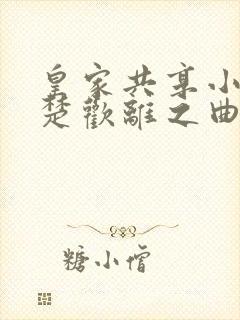 皇家共享小
楚歡離之曲
糖小僧